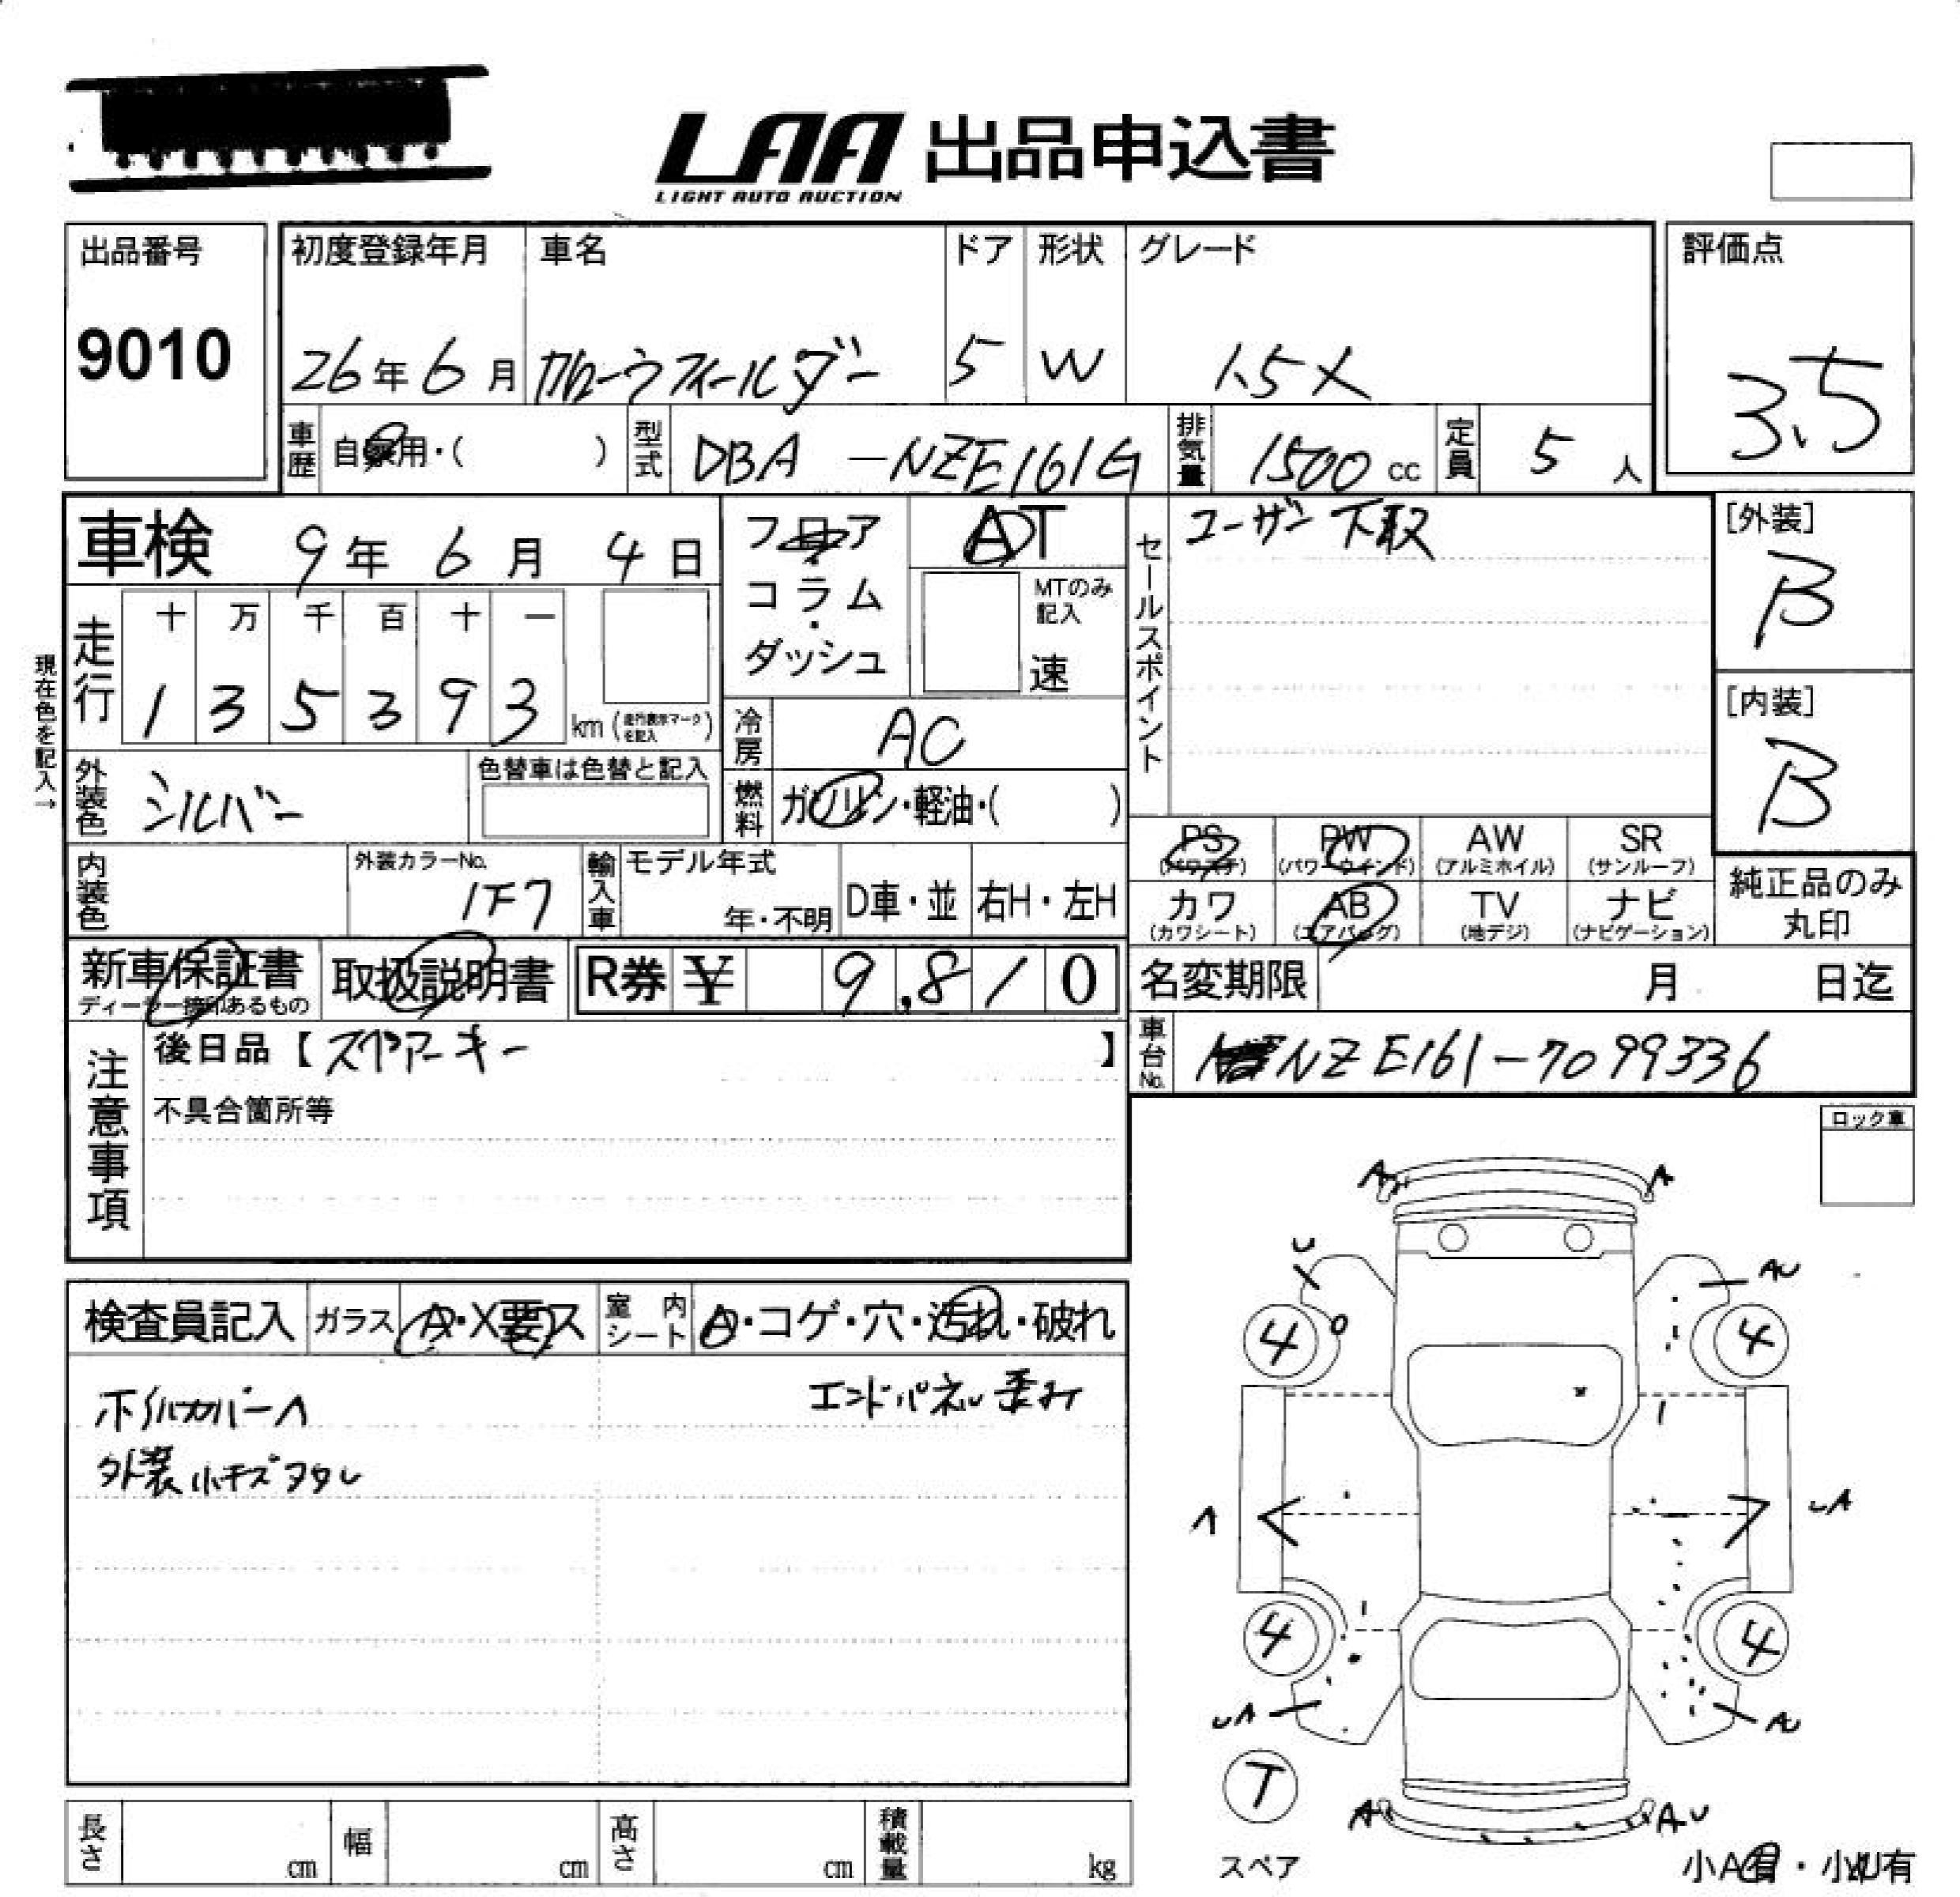 LAA 出品申込書
LIGHT AUTO AUCTION
出品番号
9010
初度登録年月
26年6月
車名
カローラフィールダー
ドア
5
形状
W
グレード
1.5X
評価点
3.5
車歴
自家用・( )
型式
DBA -NZE161G
排気量
1500 cc
定員
5 人
車検 9年 6月 4日
フロア・コラム・ダッシュ
AT
MTのみ記入
速
セールスポイント
ユーザー下取
[外装]
B
[内装]
B
現在色を記入→
走行
十 万 千 百 十 一
1 3 5 3 9 3 km (走行表示マークを記入)
冷房
AC
外装色
シルバー
色替車は色替と記入
燃料
ガソリン・軽油・( )
PS (パワステ)
PW (パワーウインド)
AW (アルミホイル)
SR (サンルーフ)
カワ (カワシート)
AB (エアバッグ)
TV (地デジ)
ナビ (ナビゲーション)
純正品のみ丸印
内装色
外装カラーNo.
1F7
輸入車
モデル年式
年・不明
D車・並
右H・左H
新車保証書
ディーラー捺印あるもの
取扱説明書
R券 ¥ 9,810
名変期限 月 日迄
注意事項
後日品【スペアーキー】
不具合箇所等
車台No.
NZE161-7099336
ロック車
検査員記入
ガラス
A・X要ス
室内シート
A・コゲ・穴・汚れ・破れ
ホイルカバーA
エンドパネル歪み
外装小キズヲタレ
A
A
U
AU
4
4
A
UA
4
4
UA
AU
T
スペア
A
AU
小A有・小U有
長さ
cm
幅
cm
高さ
cm
積載量
kg